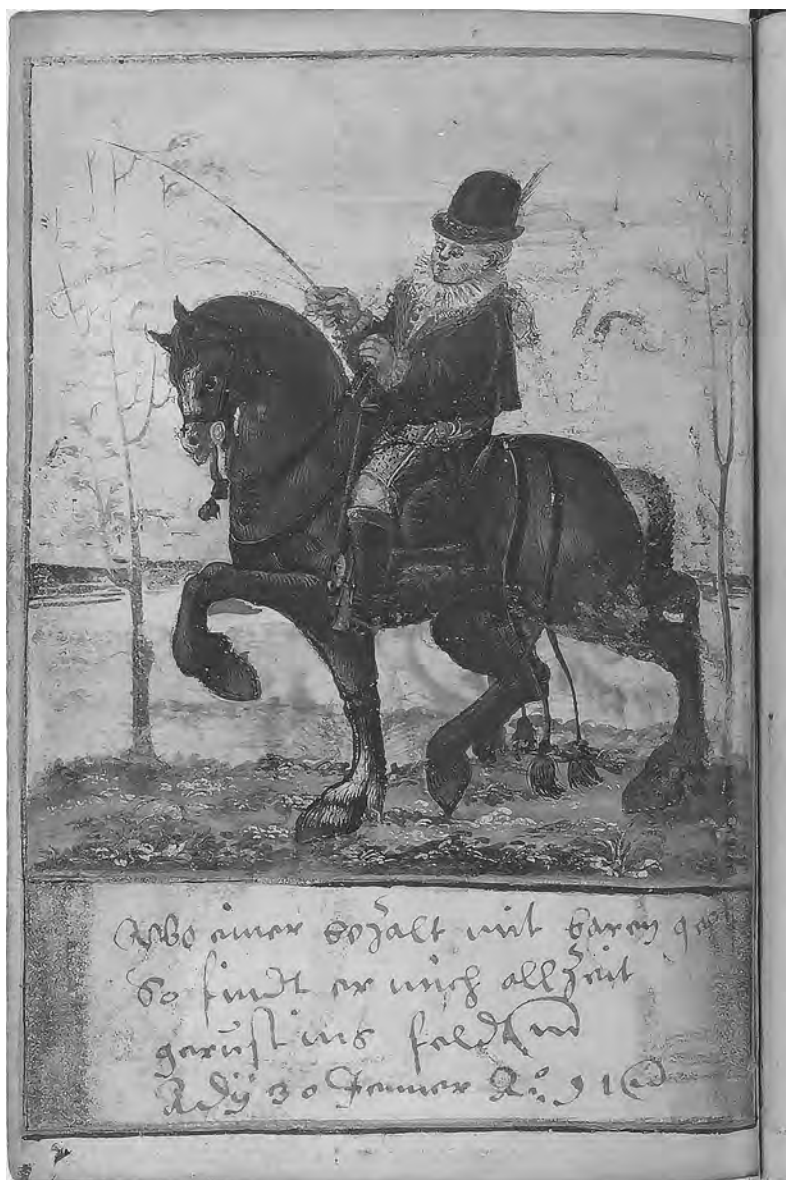 Wo einer bezalt mit baren gelt
So findt er mich allzeit
gerust ins feldt
Ady 30 Jenner Aº 91